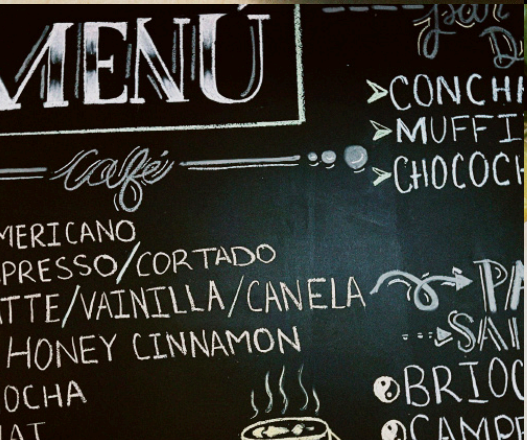 MENÚ
café
MERICANO
PRESSO/CORTADO
TTE/VAINILLA/CANELA
HONEY CINNAMON
OCHA
HAT
CONCHA
MUFFI
CHOCOCH
PA
SAL
BRIOC
CAMPE